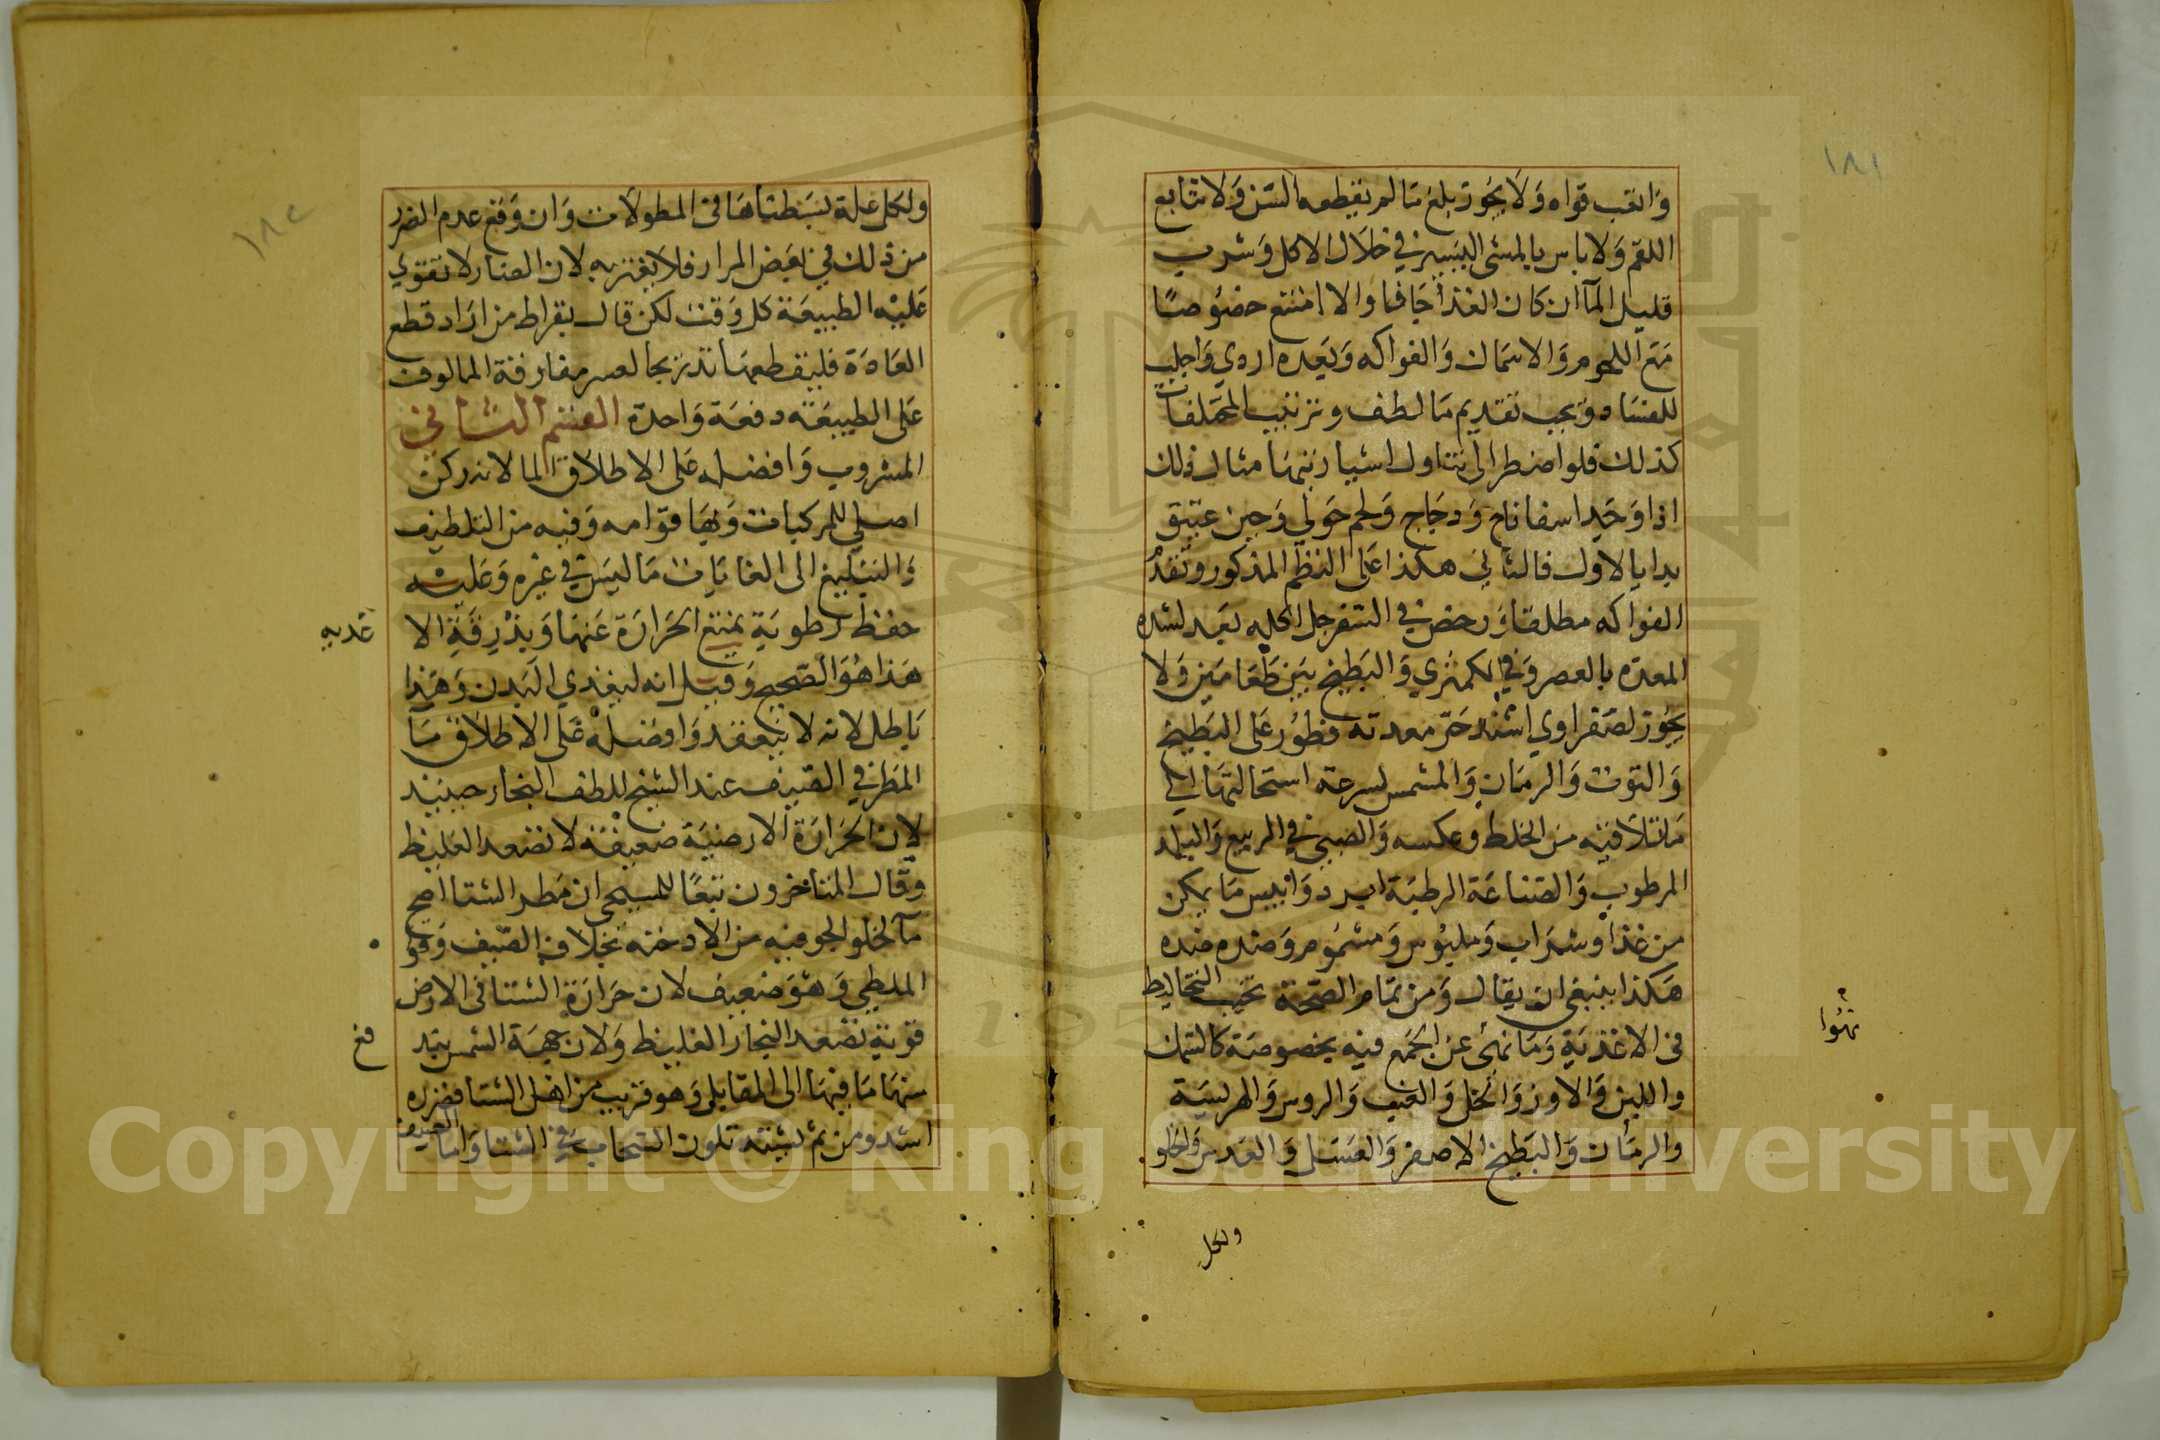 ١٨١
وَاتعَب قواه وَلا يجُوز بلع مَا لم يقطعه السّن وَلا تتابع
اللقم وَلا باس بالمشى اليَسِير في خلَال الاكل وَشرب
قليل المآ ان كان الغذا جَافا وَالا امتنع خصُوصًا
مَع اللحوم وَالاسمَاك وَالفواكه وَبَعده اردي وَاجلب
للفسَاد وَيجب تقديم مَا لطف وترتيب المختلفات
كذلك فلو اضطر الى تناول اشيا رتبهَا مثال ذلك
اذا وَجَد اسفاناخ وَدجَاج وَلحم حَولي وَجبن عتيق
بدا بالاول فالثاني هكذا عَلى النظم المذكور وتقدُ
الفواكه مطلقا وَرخص في السّفرجل اكله بَعد لشده
المعدَه بالعصر وَفي الكمثري وَالبَطيخ بَين طَعَامَين وَلا
يجُوز لصَفراوي اشتد حَر معدته فطُور عَلى البَطيخ
وَالتوت وَالرمَان وَالمشمس لسرعة استحالتهَا الي
مَا تلاقيه مِن الخلط وعكسه وَالصبى في الربيع وَالبلد
المرطوب وَالصنَاعَة الرطبَة ابرد وَايبس مَا يمكن
من غذا وشرَاب وَملبُوس وَمشمُوم وَضده ضده
هَكذا ينبغى ان يقال وَمن تمَام الصّحة تجنب التخاليط
فى الاغذيَةِ وَمَا نهىَ عن الجَمع فيه بخصوصَة كالسَمك
واللبن وَالاوز وَالخل وَالعنب وَالروس وَالهريسَة
والرمَان وَالبَطيخ الاصفر وَالعَسَل وَالعَدس وَالحلو
نهَوا
ولكل
١٨٢
ولكل علة بسَطناهَا فى المطولاَت وَان وَقع عدم الضرر
من ذلك في بَعض المرار فلا يغتر به لان الضار لا تقوي
عَليْه الطبيعَة كل وَقت لكن قال بقراط من ارَاد قطع
العَادَة فليقطعهَا تدريجا لعسر مفارقة المالوف
عَلى الطبيعَة دفعَة وَاحدَة القسم الثاني
المشروب وَافضله عَلى الاطلاَق الما لانه ركن
اصلي للمركبات وَبهَا قوّامه وَفيه من التلطيف
وَالتبليغ الى الغايَات مَا ليسَ في غيره وَعَليه
حفظ رطوبَة يمتنع الحَرارَة عَنهَا وَبذْرِقَةِ الا
غديه
هَذا هُوَ الصّحيح وَقيل انه ليغذي البَدن وَهَذا
بَاطل لانه لا ينعقد وَافضلهُ عَلى الاطلاَق مَآ
المَطر في الصّيف عند الشيخ للطف البخار حينيذ
لاِن الحَرارَة الارضيَة ضعيفَة لا تصَعد الغليظ
وقَال المتاخرون تبعًا للمسيحى ان مَطر الشتا اصح
مآ لخلو الجو فيه من الادخنه بخلاَف الصّيف وَقو
الملطي وَهُوَ ضعيف لان حَرارَة الشتا فى الارض
قويَة تصَعد البخار الغليظ وَلان جهَة الشمس بتد
فع
منهَا مَا فيهَا الى المقابل وَهو قريب من اهل الشتا فضرره
اشد ومن ثم يشبته تلون السّحاب في الشتا وَاما العيون